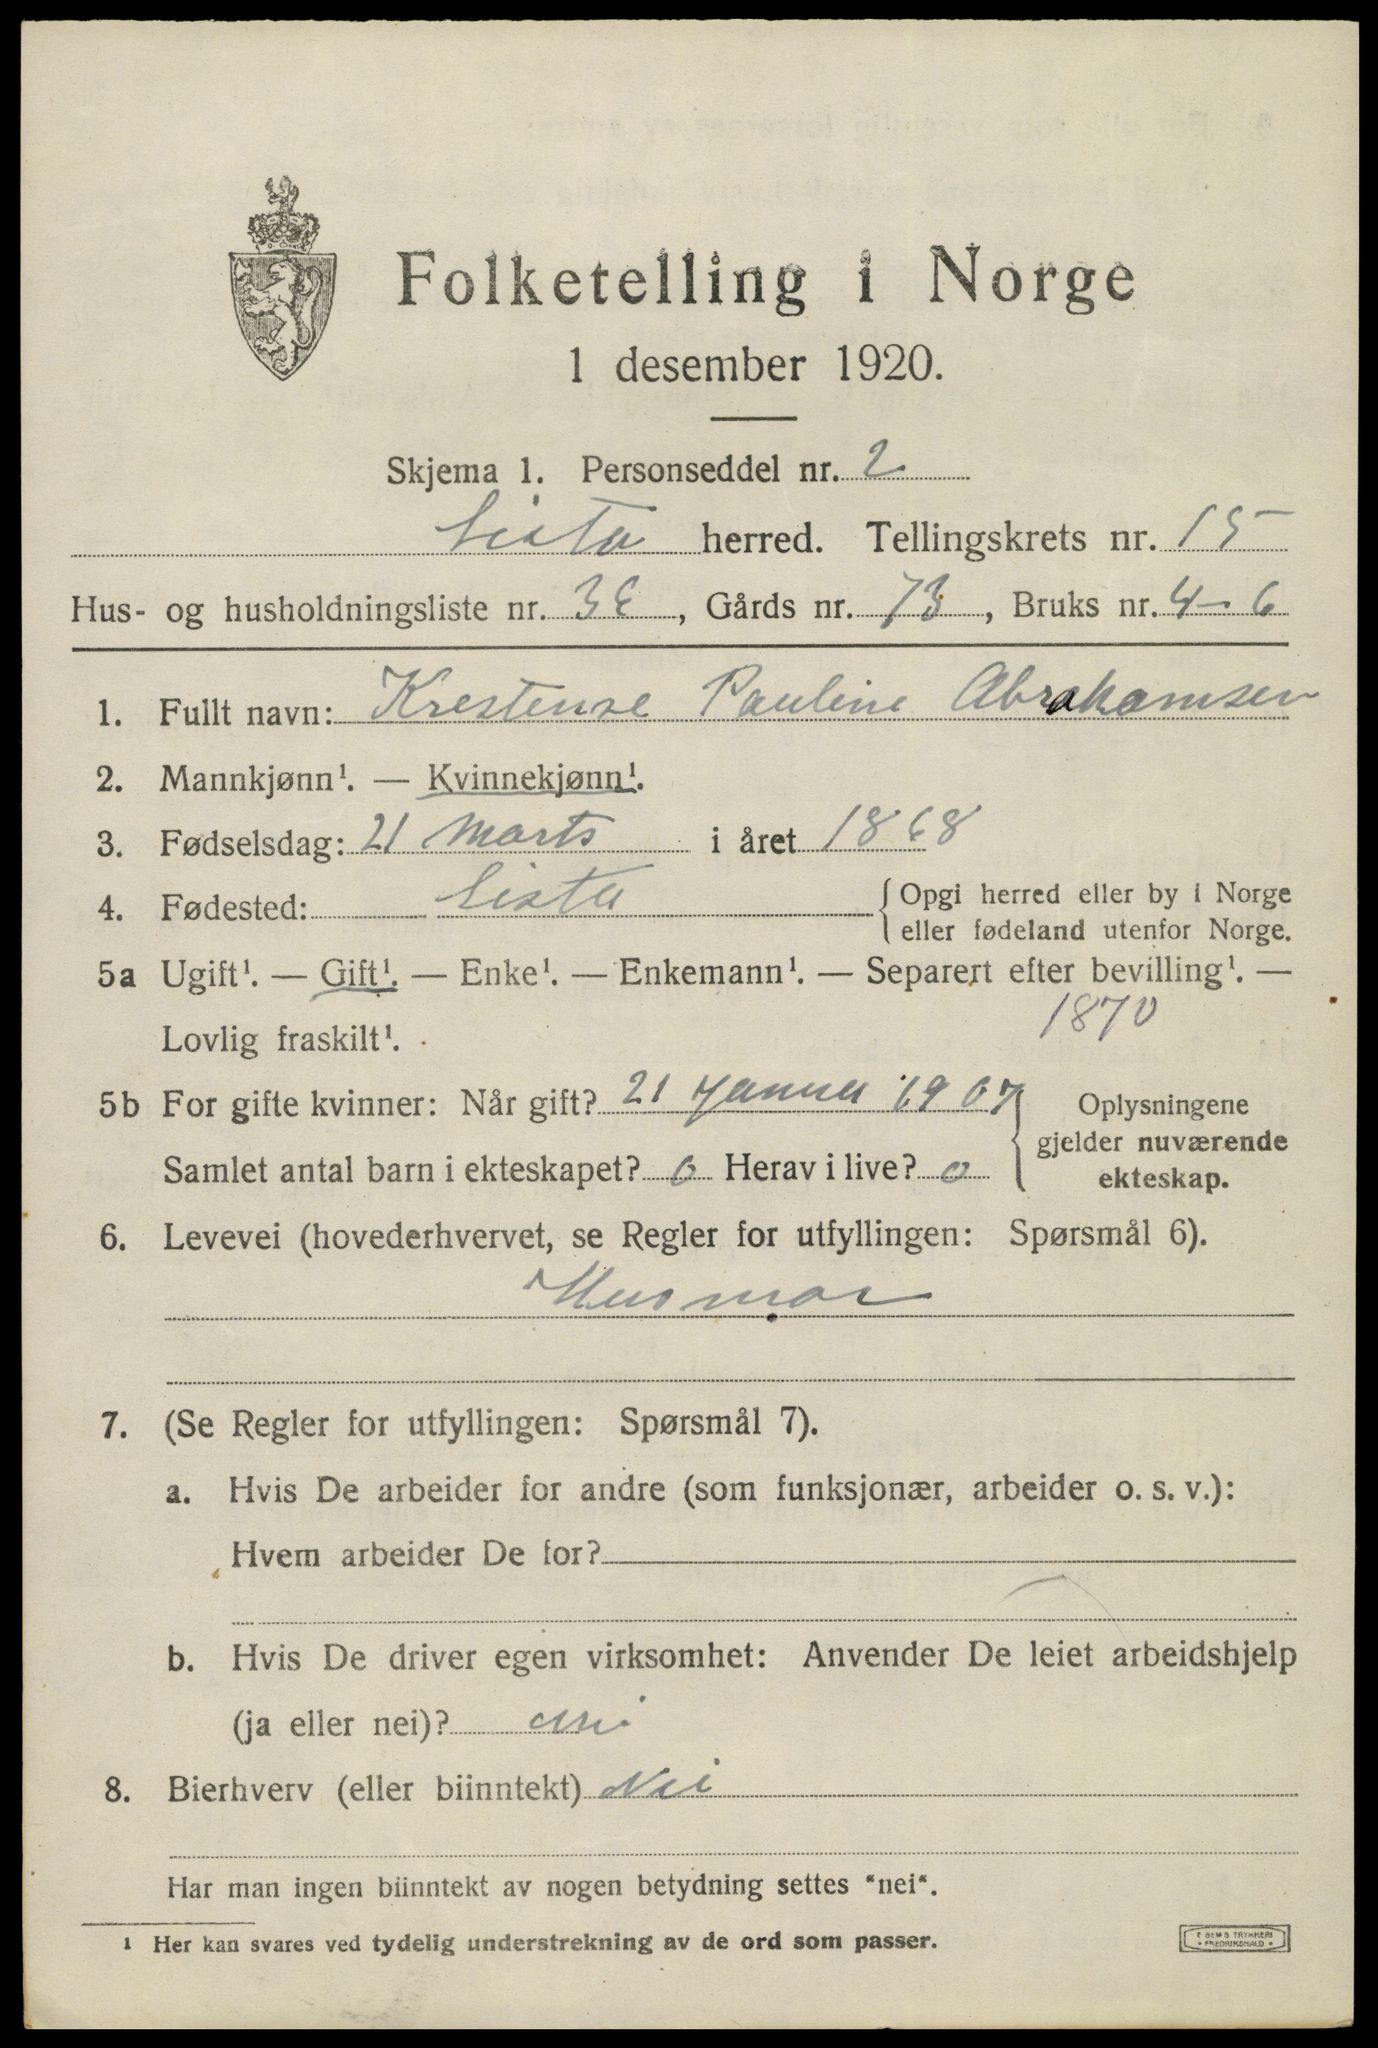 Folketelling i Norge
1 desember 1920.
Skjema 1. Personseddel nr. 2
Lista herred. Tellingskrets nr. 15
Hus- og husholdningsliste nr. 38, Gårds nr. 73, Bruks nr. 4-6
1. Fullt navn: Krestense Pauline Abrahamsen
2. Mannkjønn¹. — Kvinnekjønn¹.
3. Fødselsdag: 21 Marts i året 1868
4. Fødested: Lista { Opgi herred eller by i Norge
eller fødeland utenfor Norge.
5a Ugift¹. — Gift¹. — Enke¹. — Enkemann¹. — Separert efter bevilling¹. —
1870
Lovlig fraskilt¹.
5b For gifte kvinner: Når gift? 21 Januar 1907 } Oplysningene
gjelder nuværende
Samlet antal barn i ekteskapet? 0 Herav i live? 0 ekteskap.
6. Levevei (hovederhvervet, se Regler for utfyllingen: Spørsmål 6).
Husmor
7. (Se Regler for utfyllingen: Spørsmål 7).
a. Hvis De arbeider for andre (som funksjonær, arbeider o. s. v.):
Hvem arbeider De for?
b. Hvis De driver egen virksomhet: Anvender De leiet arbeidshjelp
(ja eller nei)? nei
8. Bierhverv (eller biinntekt) Nei
Har man ingen biinntekt av nogen betydning settes "nei".
¹ Her kan svares ved tydelig understrekning av de ord som passer.
E SEMS TRYKKERI
• FREDRIKSHALD •